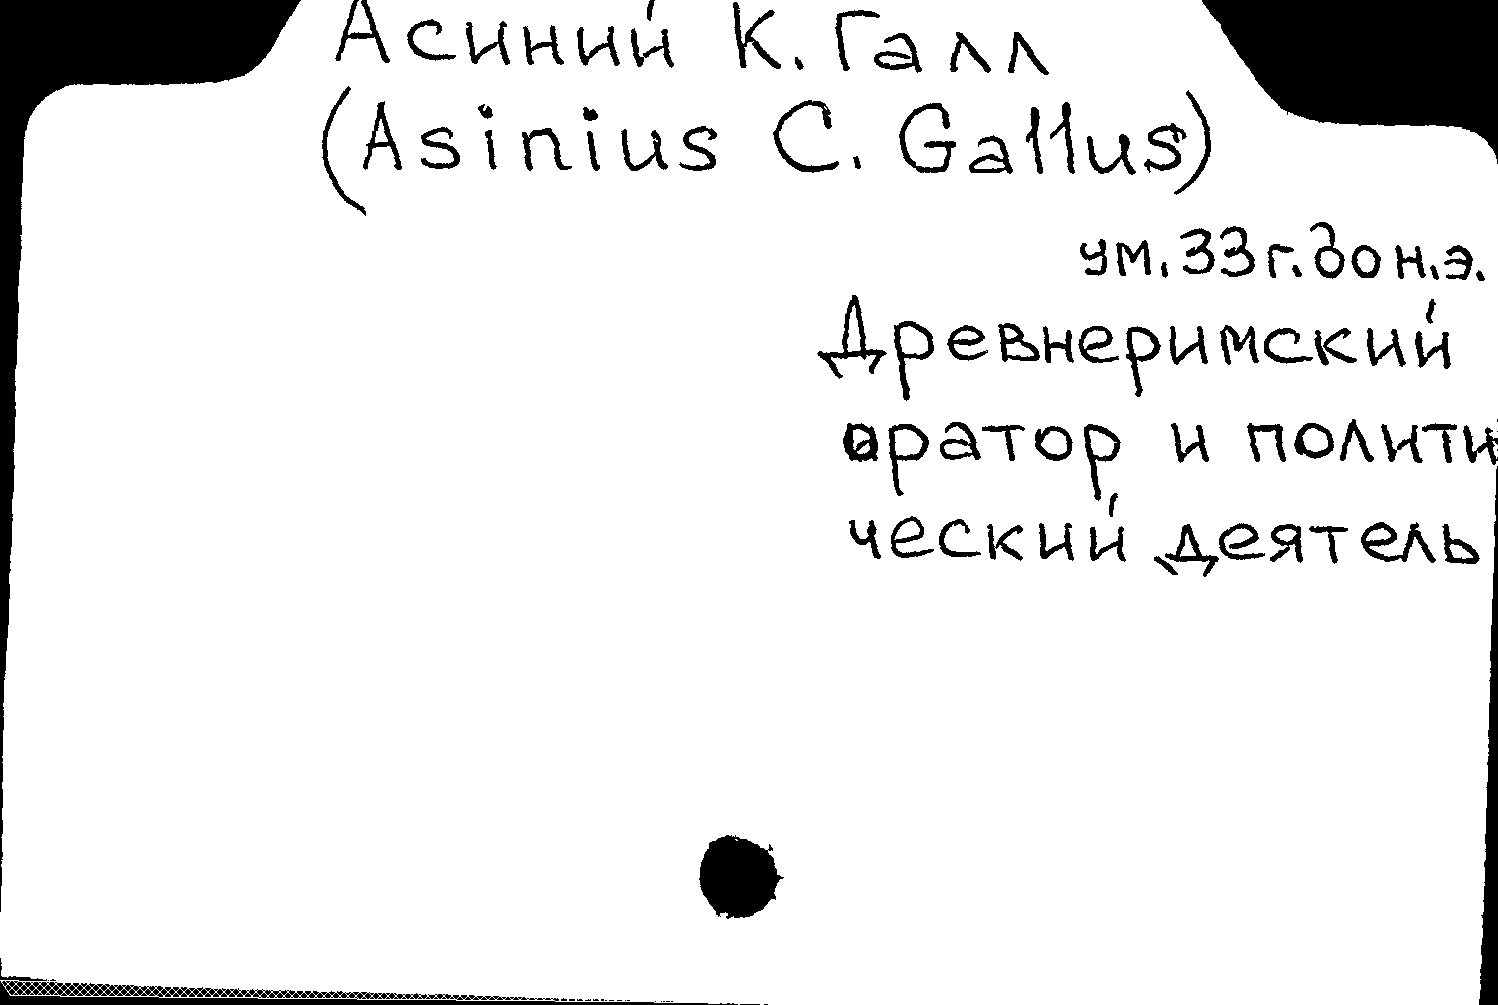 Асиний К. Галл
(Asinius C. Gallus)
ум. 33 г. до н.э.
Древнеримский
оратор и полити
ческий деятель